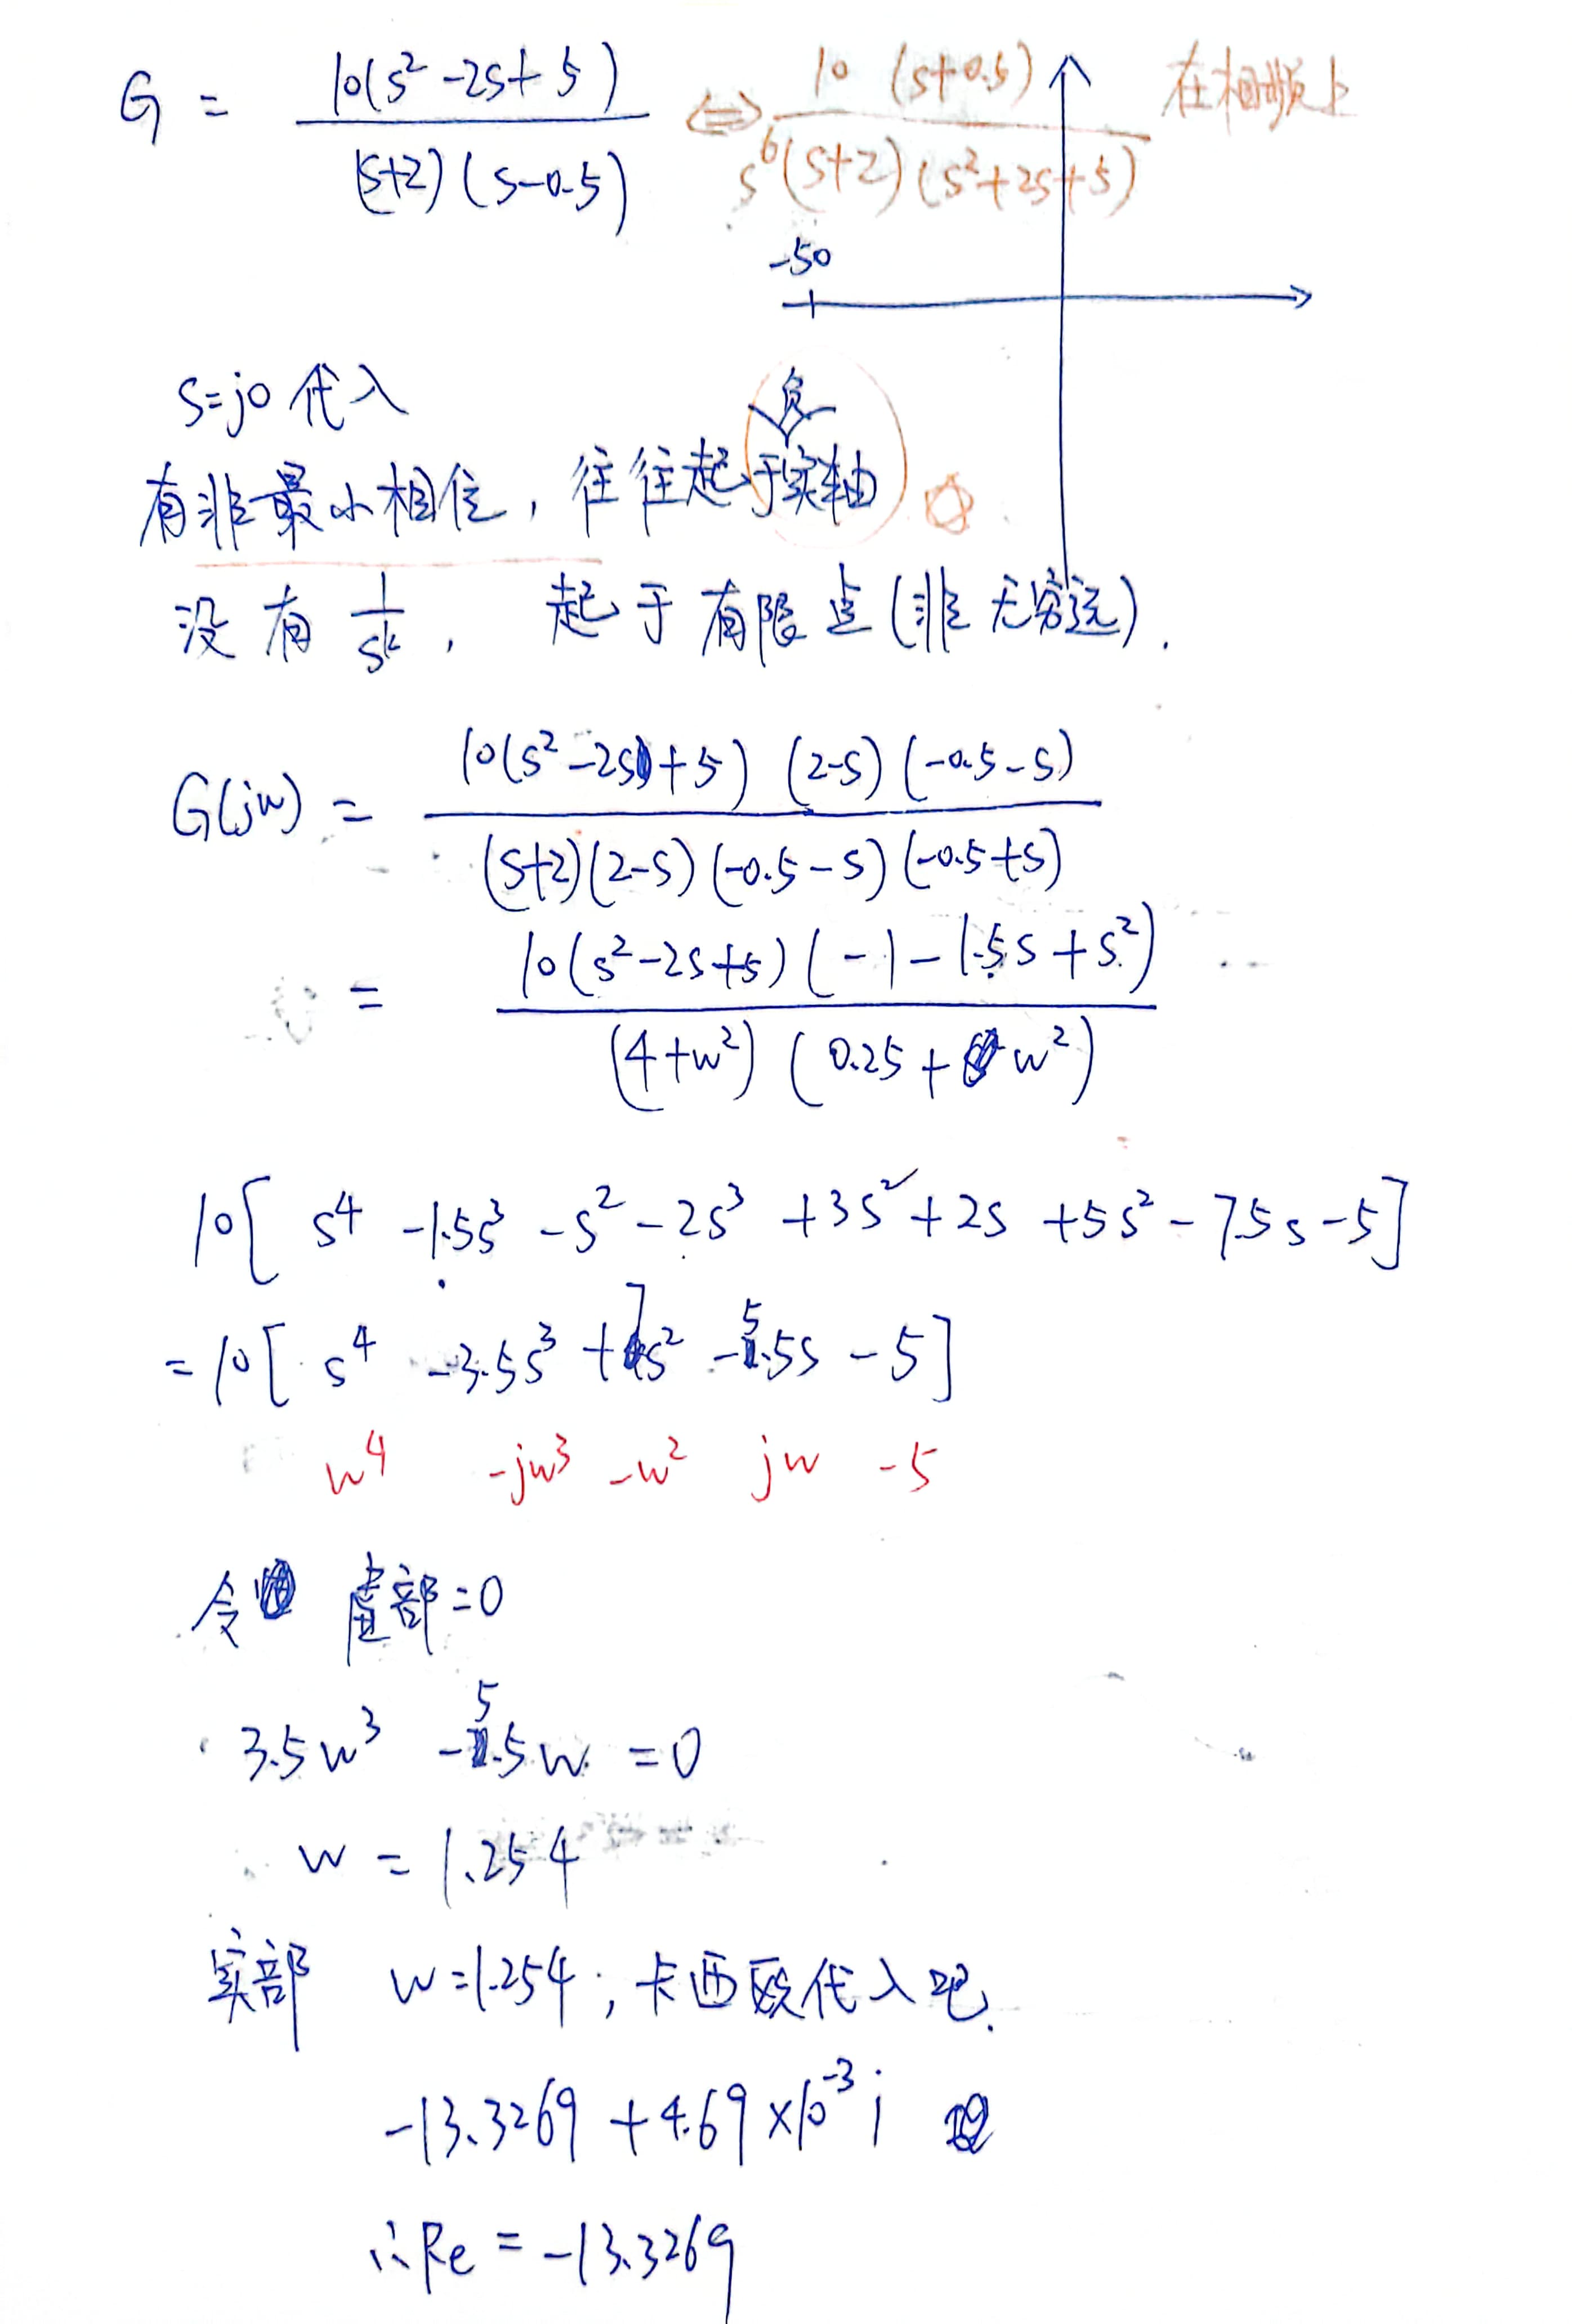 G = 10(s² -2s+ 5) / (s+2)(s-0.5) ⇔ 10 (s+0.5) / s⁶(s+2)(s²+2s+5) 在相频上
-50
s=j0 代入
负
有非最小相位, 往往起于实轴 ☆
没有 1/sᵏ , 起于有限点(非无穷远).
G(jw) = 10(s²-2s+5) (2-s) (-0.5-s) / (s+2)(2-s)(-0.5-s)(-0.5+s)
= 10(s²-2s+5) (-1-1.5s+s²) / (4+w²) (0.25+w²)
10[ s⁴ -1.5s³ -s² -2s³ +3s² +2s +5s² -7.5s -5]
=10[ s⁴ -3.5s³ +7s² -5.5s -5]
w⁴ -jw³ -w² jw -5
令 虚部=0
3.5w³ -5.5w =0
w = 1.254
实部 w=1.254; 卡西欧代入吧.
-13.3269 +4.69×10⁻³ i
∴Re = -13.3269